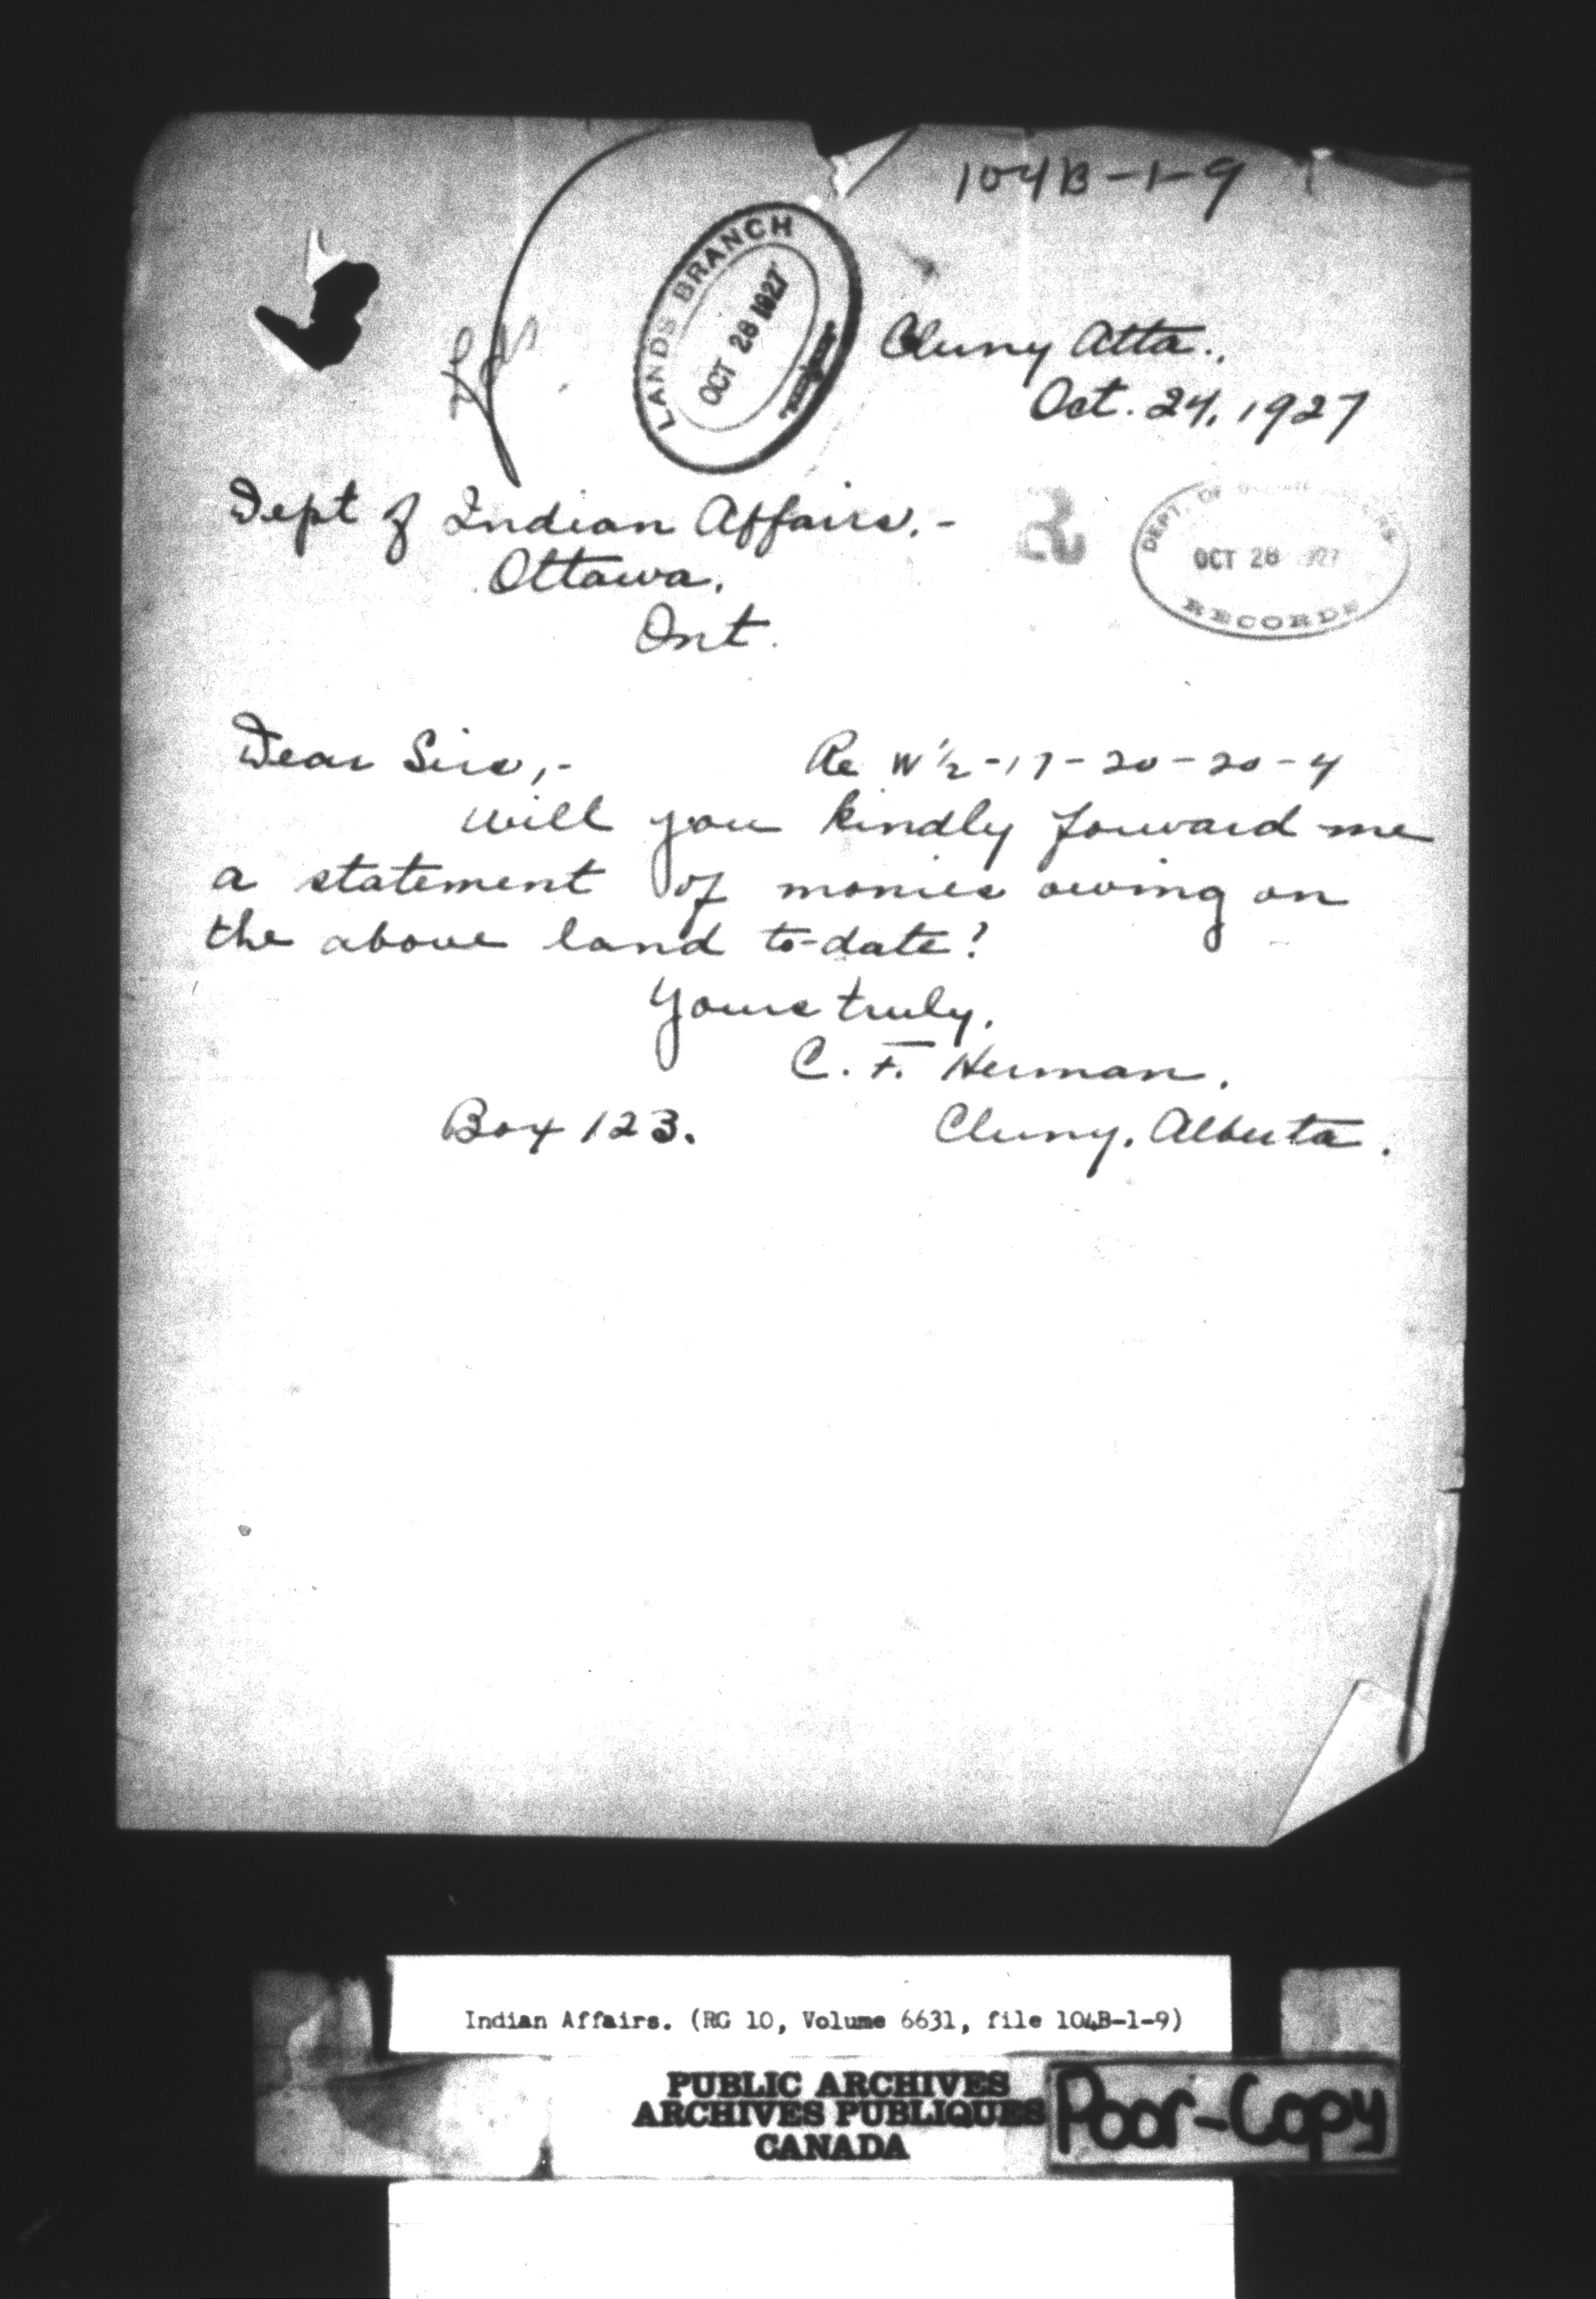 104B-1-9
LANDS BRANCH
OCT 28 1927
Cluny Alta.,
Oct. 24, 1927
Dept of Indian Affairs,-
Ottawa,
Ont.
R
DEPT. OF INDIAN AFFAIRS
OCT 28 1927
RECORDS
Dear Sirs,-
Re W 1/2 -17-20-20-4
Will you kindly forward me
a statement of monies owing on
the above land to-date?
Yours truly,
C. F. Herman.
Box 123.
Cluny, Alberta.
Indian Affairs. (RG 10, Volume 6631, file 104B-1-9)
PUBLIC ARCHIVES
ARCHIVES PUBLIQUES
CANADA
Poor-Copy